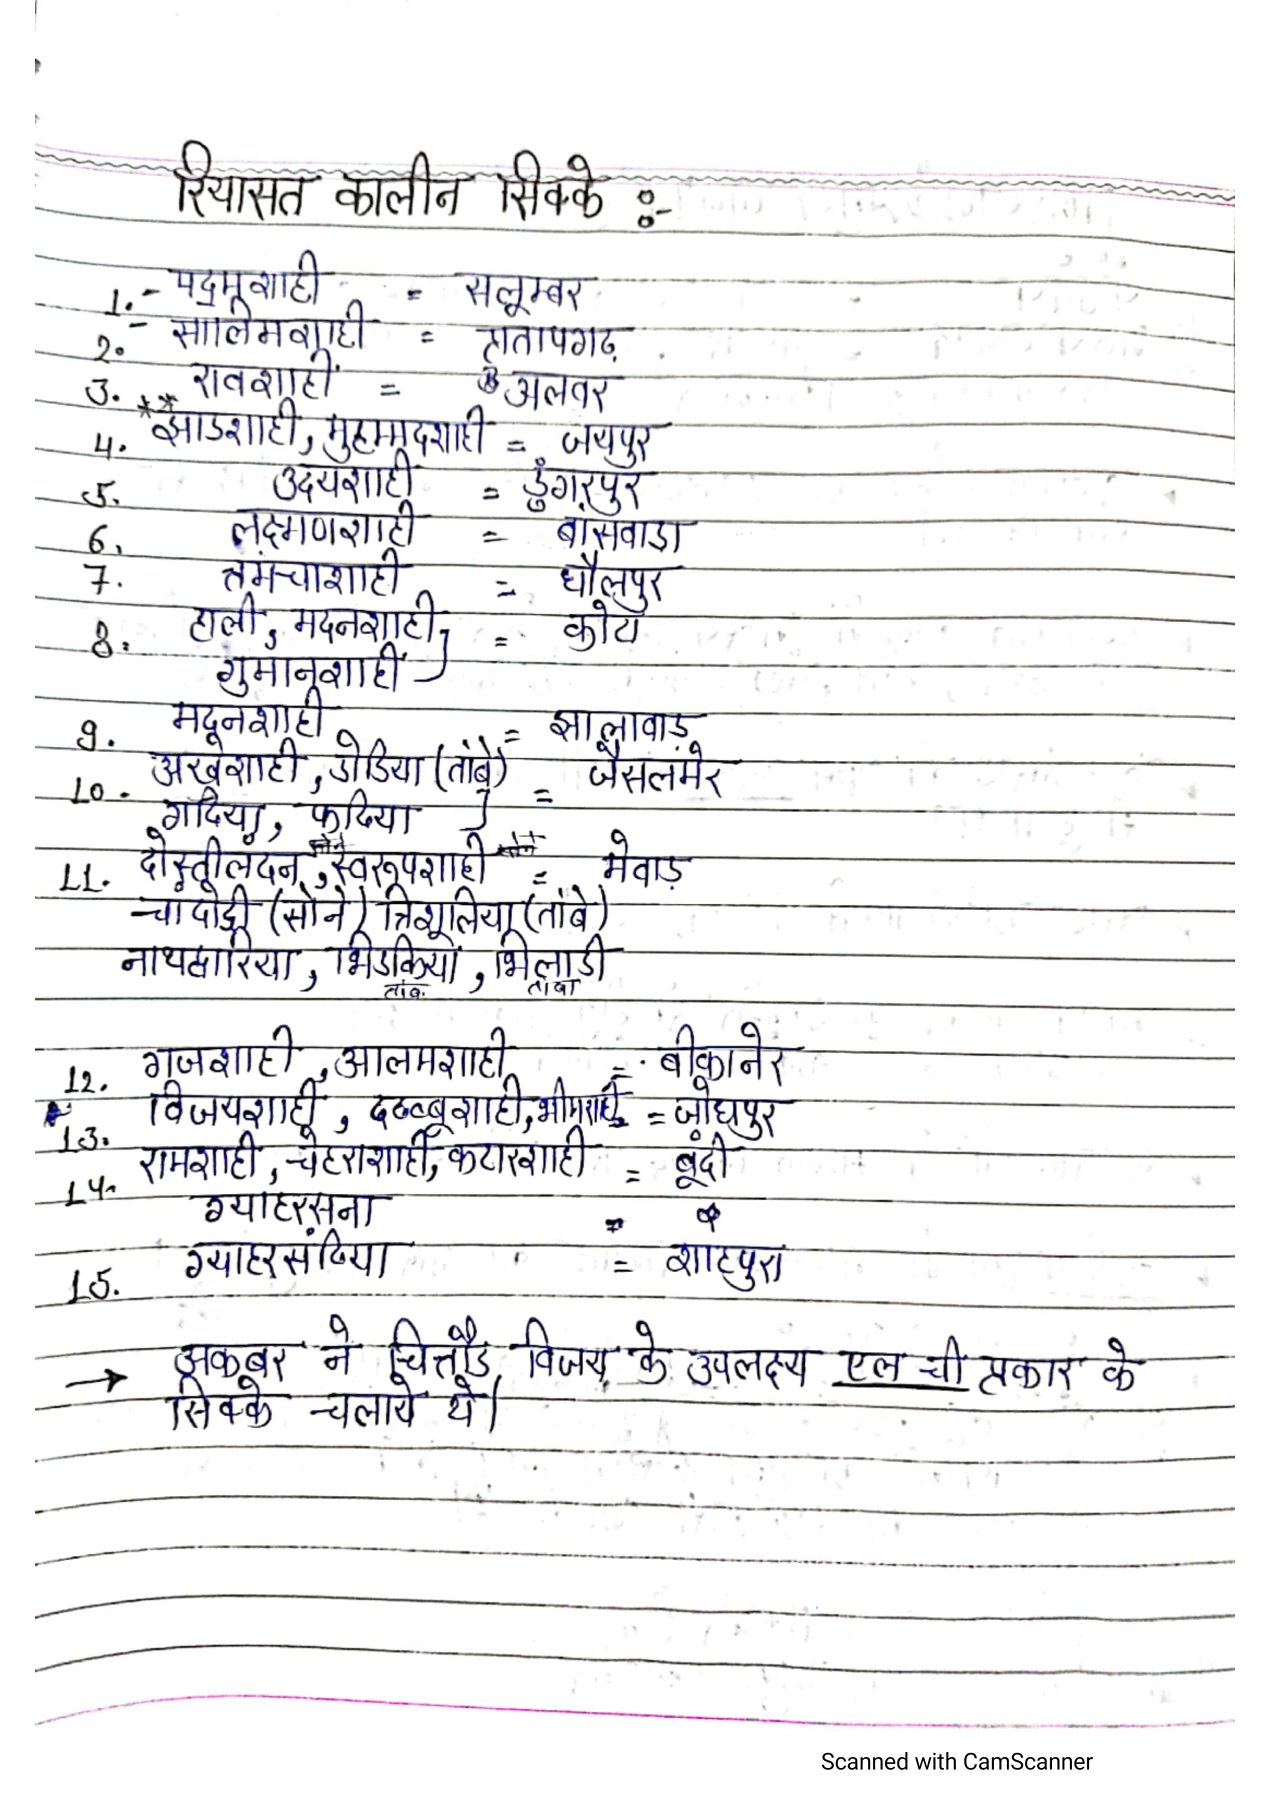 रियासत कालीन सिक्के :-
1. - पद्मशाही = सलूम्बर
2. - सालिमशाही = प्रतापगढ़
3. रावशाही = अलवर
4. ** झाडशाही, मुहम्मदशाही = जयपुर
5. उदयशाही = डुंगरपुर
6. लक्ष्मणशाही = बांसवाडा
7. तमंचाशाही = धौलपुर
8. हाली, मदनशाही, = कोटा
गुमानशाही
9. मदनशाही = झालावाड़
10. अखेशाही, डोडिया (तांबे) = जैसलमेर
गदिया, फदिया
11. दोस्तीलंदन, स्वरूपशाही = मेवाड़
चांदोडी (सोने) त्रिशूलिया (तांबे)
नाथद्वारिया, भिडकियां, भिलाडी
तांबा
12. गजशाही, आलमशाही = बीकानेर
13. विजयशाही, ढब्बूशाही, भीमशाही = जोधपुर
14. रामशाही, चेहराशाही, कटारशाही = बूंदी
ग्याहरसना = "
15. ग्याहरसंदिया = शाहपुरा
→ अकबर ने चित्तौड विजय के उपलक्ष्य एल ची प्रकार के
सिक्के चलाये थे।
Scanned with CamScanner